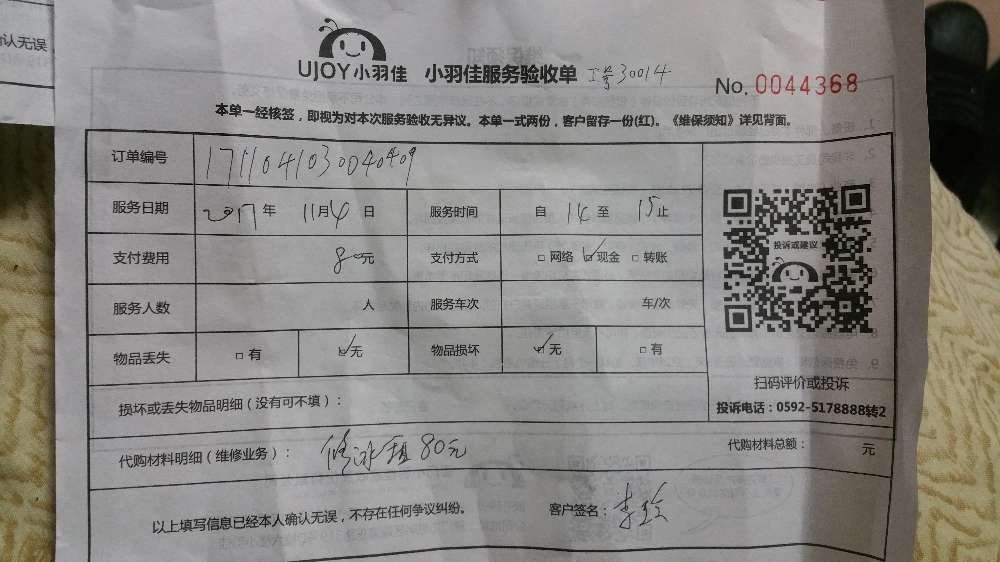 确认无误,
UJOY小羽佳 小羽佳服务验收单 工号30014
No. 0044368
本单一经核签，即视为对本次服务验收无异议。本单一式两份，客户留存一份(红)。《维保须知》详见背面。
订单编号 1711041030040409
服务日期 2017年 11月4日 服务时间 自 14 至 15 止
投诉或建议
支付费用 80元 支付方式 □网络 ☑现金 □转账
服务人数 人 服务车次 车/次
物品丢失 □有 ☑无 物品损坏 ☑无 □有
扫码评价或投诉
投诉电话：0592-5178888转2
损坏或丢失物品明细（没有可不填）：
代购材料明细（维修业务）： 修冰箱80元 代购材料总额： 元
以上填写信息已经本人确认无误，不存在任何争议纠纷。 客户签名：